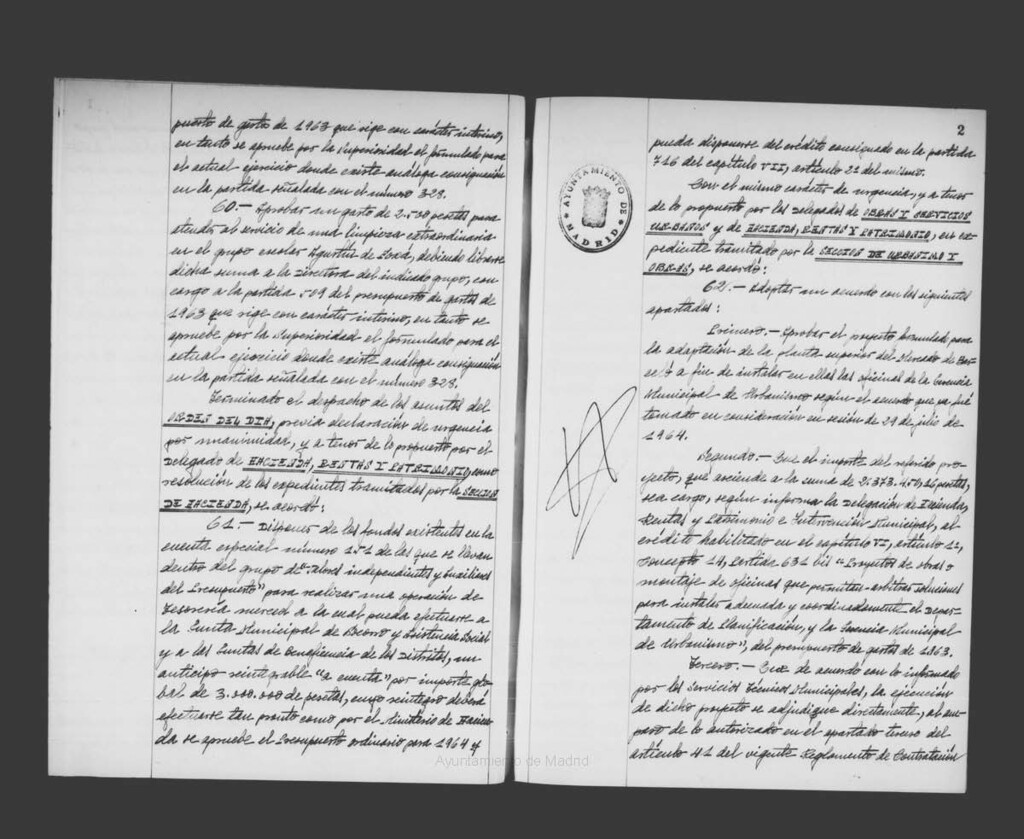 puesto de gastos de 1963 que rige con carácter interino,
en tanto se apruebe por la Superioridad el formulado para
el actual ejercicio donde existe análoga consignación
en la partida señalada con el número 323.
60.- Aprobar un gasto de pesetas, para
atender al servicio de una limpieza extraordinaria
en el grupo escolar Agustín de Foxá, debiendo librarse
dicha suma a la Directora del indicado grupo, con
cargo a la partida 509 del presupuesto de gastos de
1963 que rige con carácter interino, en tanto se
apruebe por la Superioridad el formulado para el
actual ejercicio donde existe análoga consignación
en la partida señalada con el número 323.
Terminado el despacho de los asuntos del
ORDEN DEL DIA, previa declaración de urgencia
por unanimidad, y a tenor de lo propuesto por el
Delegado de HACIENDA, RENTAS Y PATRIMONIO, como
resolución de los expedientes tramitados por la SECCION
DE HACIENDA, se acordó:
61.- Disponer de los fondos existentes en la
cuenta especial número 151 de las que se llevan
dentro del grupo de "Valores independientes y Auxiliares
del Presupuesto" para realizar una operación de
Tesorería merced a la cual pueda efectuarse a
la Junta Municipal de Socorro y Asistencia Social
y a las Juntas de Beneficencia de los Distritos, un
anticipo reintegrable "a cuenta" por importe glo-
bal de 3.000.000 de pesetas, cuyo reintegro deberá
efectuarse tan pronto como por el Ministerio de Hacien-
da se apruebe el Presupuesto ordinario para 1964 y
2
pueda disponerse del crédito consignado en la partida
716 del capítulo VII, artículo 2º del mismo.
Con el mismo carácter de urgencia, y a tenor
de lo propuesto por los Delegados de OBRAS Y SERVICIOS
URBANOS y de HACIENDA, RENTAS Y PATRIMONIO, en ex-
pediente tramitado por la SECCION DE URBANISMO Y
OBRAS, se acordó:
62.- Adoptar un acuerdo con los siguientes
apartados:
Primero.- Aprobar el proyecto formulado para
la adaptación de la planta superior del Mercado de Bar-
celó a fin de instalar en ellas las oficinas de la Gerencia
Municipal de Urbanismo según el acuerdo que ya fué
tomado en consideración en sesión de 29 de julio de
1964.
Segundo.- Que el importe del referido pro-
yecto, que asciende a la suma de pesetas,
sea cargo, según informa la Delegación de Hacienda,
Rentas y Patrimonio e Intervención Municipal, al
crédito habilitado en el capítulo VI, artículo 1º,
concepto 14, partida 631 bis "Proyectos de obras o
montaje de oficinas que permitan arbitrar soluciones
para instalar adecuada y coordinadamente el Depar-
tamento de Planificación, y la Gerencia Municipal
de Urbanismo", del presupuesto de gastos de 1963.
Tercero.- Que de acuerdo con lo informado
por los Servicios Técnicos Municipales, la ejecución
de dicho proyecto se adjudique directamente, al am-
paro de lo autorizado en el apartado tercero del
artículo 41 del vigente Reglamento de Contratación
AYUNTAMIENTO DE MADRID
Ayuntamiento de Madrid